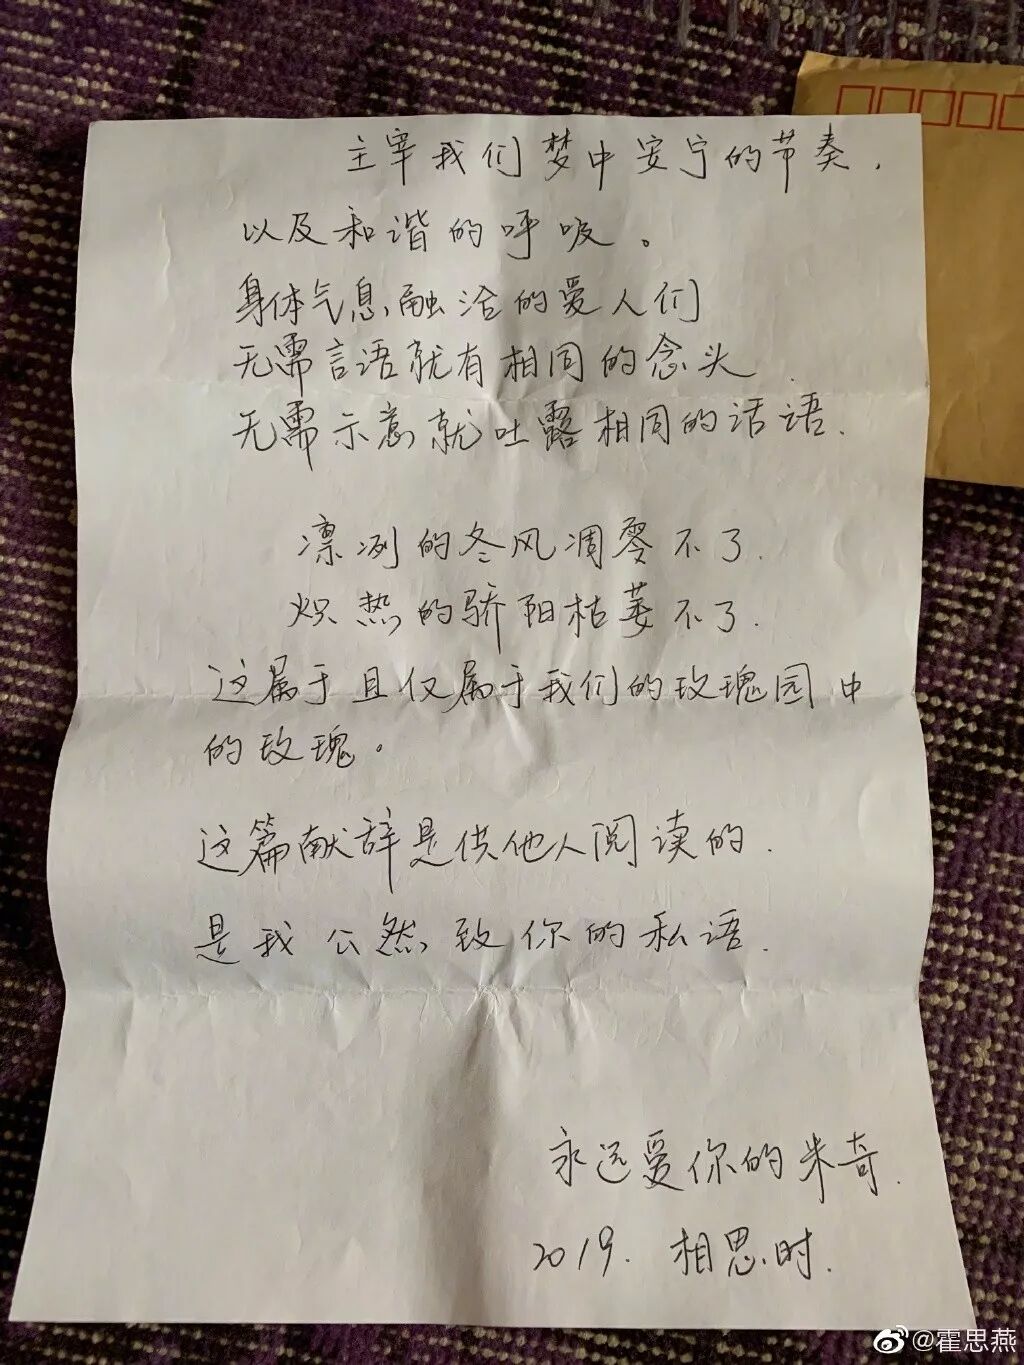 主宰我们梦中安宁的节奏,
以及和谐的呼吸。
身体气息融洽的爱人们
无需言语就有相同的念头
无需示意就吐露相同的话语.
凛冽的冬风凋零不了.
炽热的骄阳枯萎不了.
这属于且仅属于我们的玫瑰园中
的玫瑰。
这篇献辞是供他人阅读的.
是我公然致你的私语.
永远爱你的米奇.
2019. 相思时.
@霍思燕